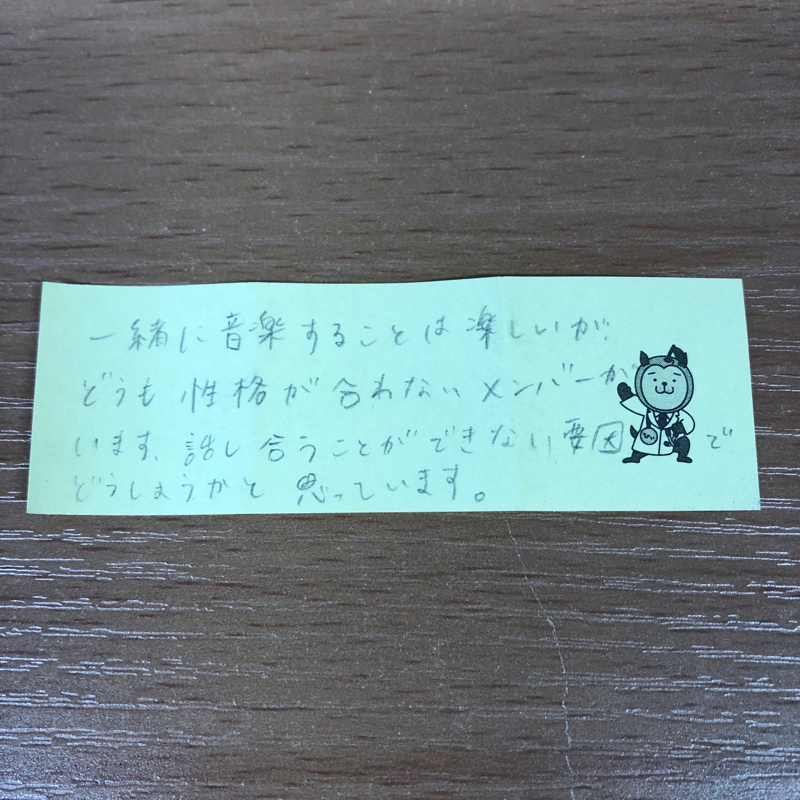 一緒に音楽することは楽しいが、
どうも性格が合わないメンバーが
います。話し合うことができない要因で
どうしようかと思っています。